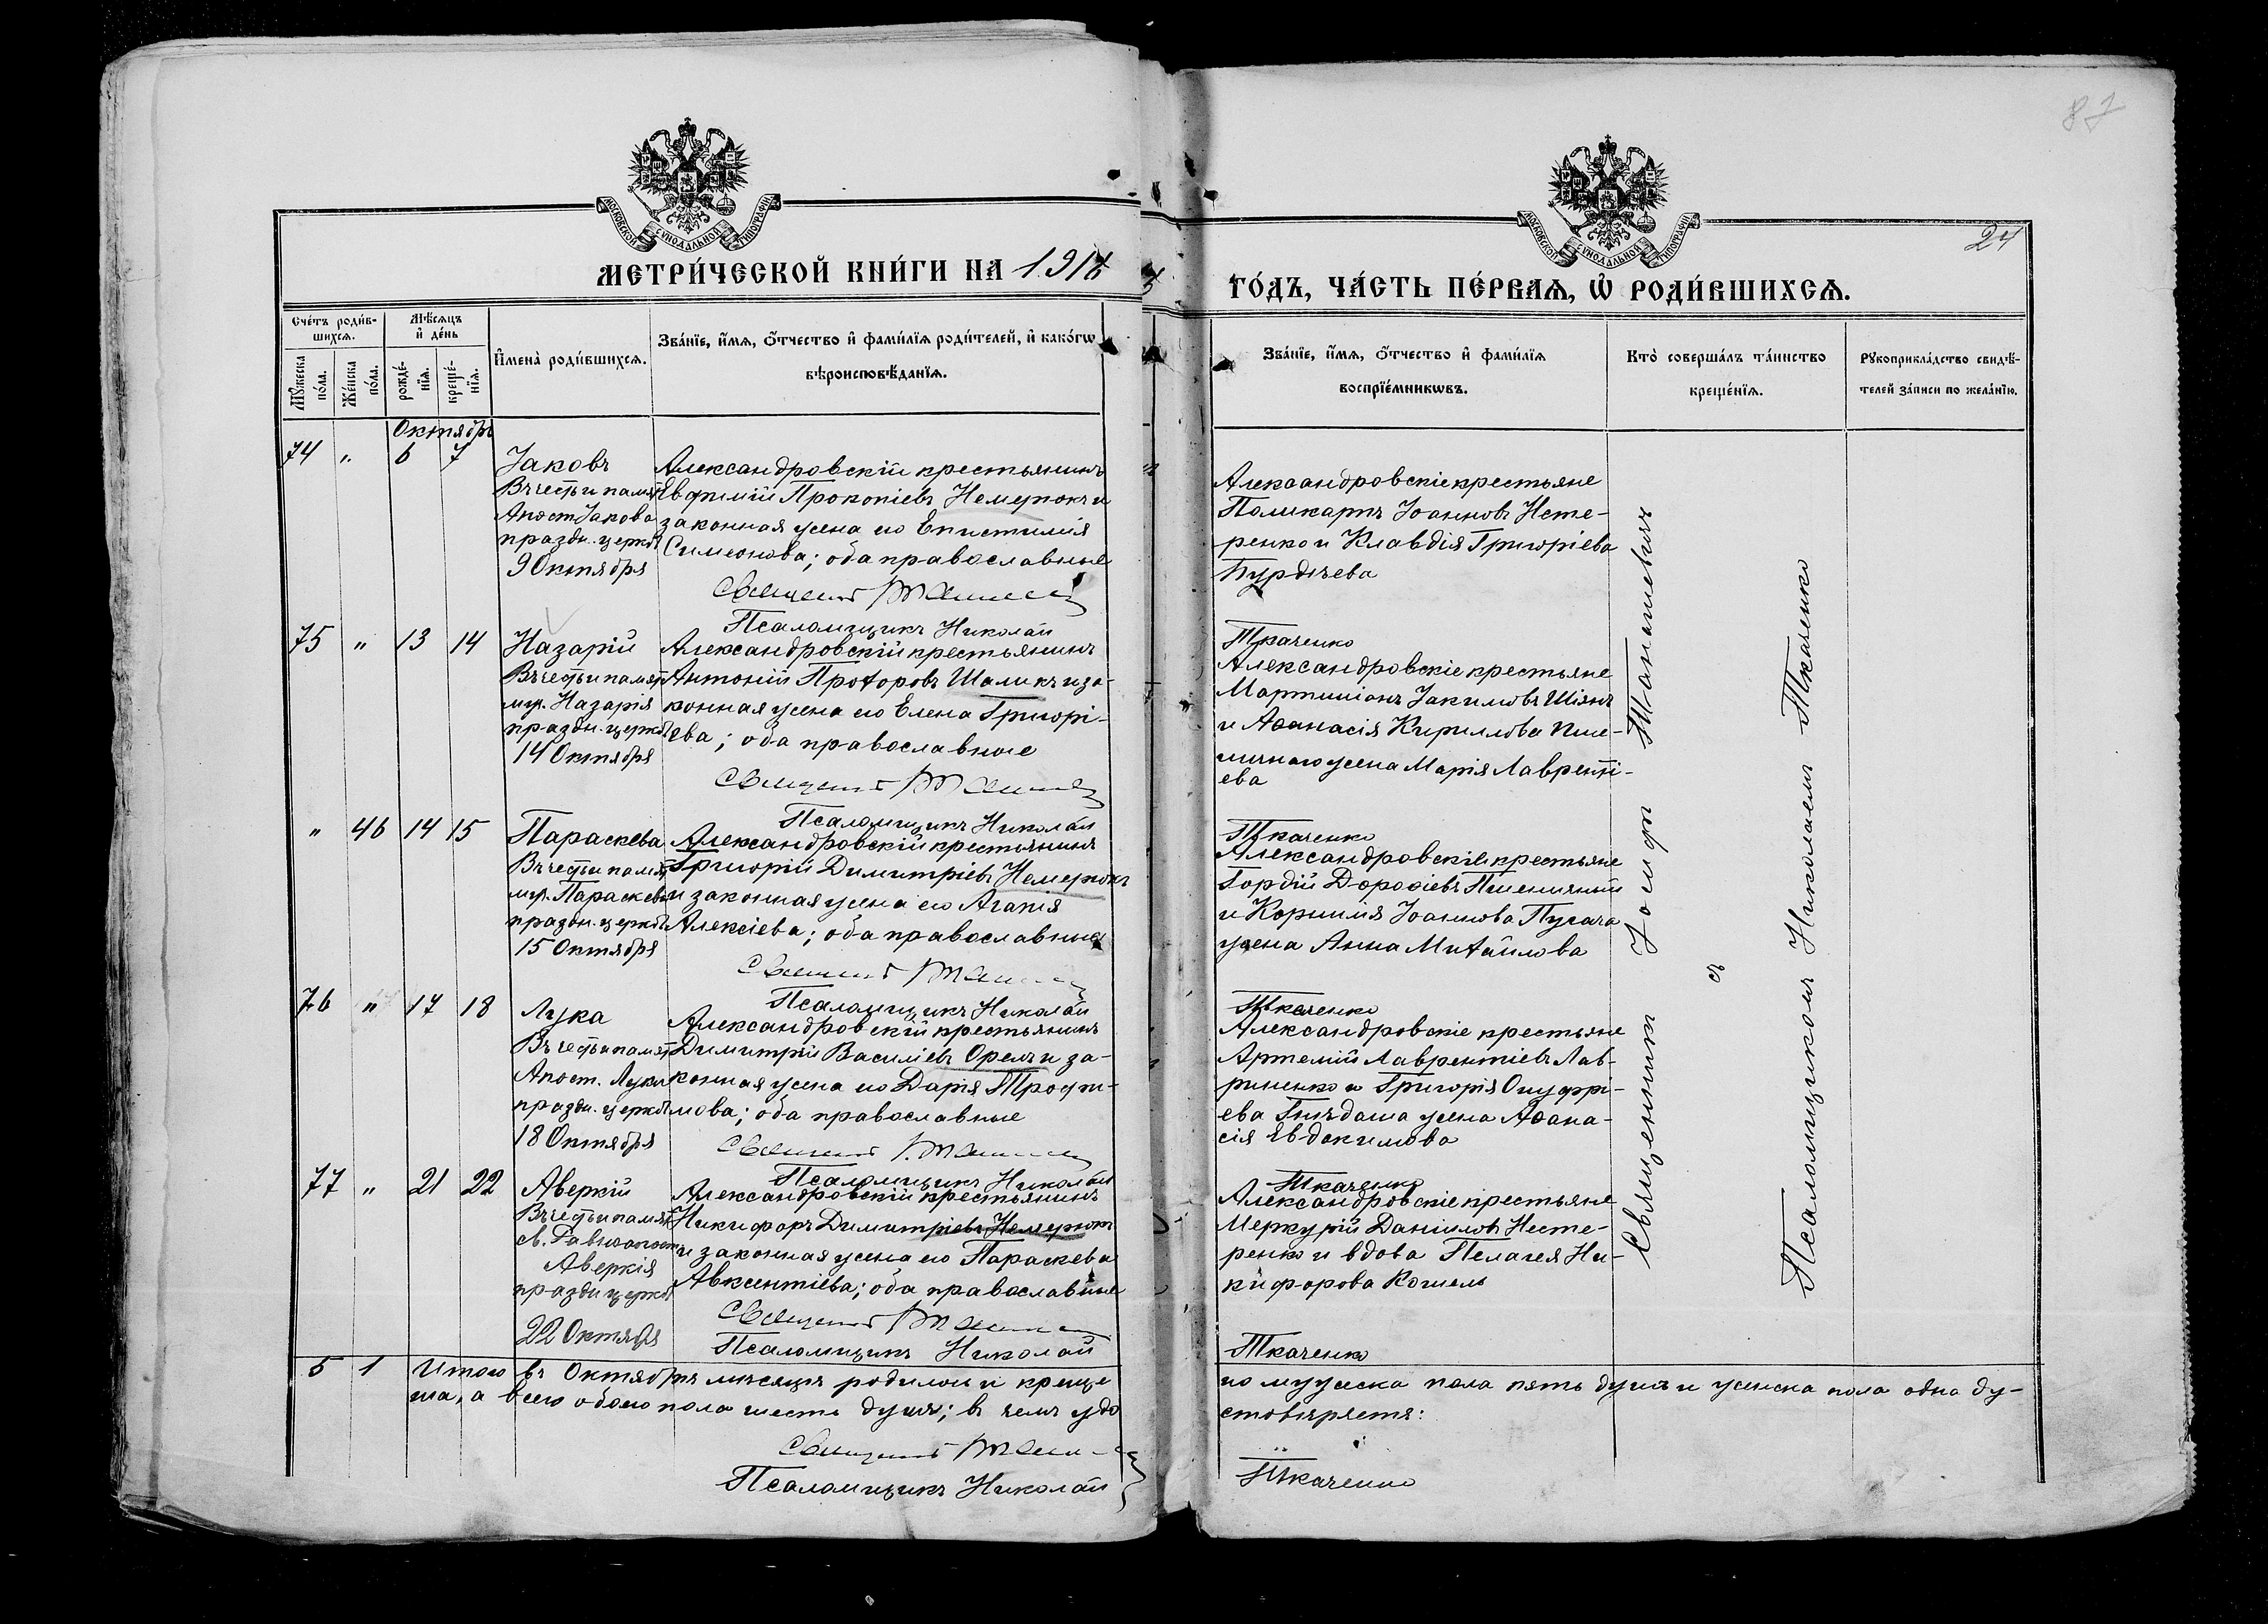 87
МОСКОВСКОЙ СѴНОДАЛЬНОЙ ТИПОГРАФІИ
МОСКОВСКОЙ СѴНОДАЛЬНОЙ ТИПОГРАФІИ
24
МЕТРИ́ЧЕСКОЙ КНИ́ГИ НА 191
ГО́ДЪ, ЧА́СТЬ ПЕ́РВАѦ, Ѽ РОДИ́ВШИХСѦ.
Сче́тъ роди́в-
шихсѧ.
Мꙋ́жеска по́ла.
Же́нска по́ла.
Мѣ́сѧцъ и҆ де́нь
рожде́-нїѧ.
креще́-нїѧ.
И҆мена̀ роди́вшихсѧ.
Зва́нїе, и҆́мѧ, ѻ҆́тчество и҆ фами́лїѧ роди́телей, и҆ како́гѡ
вѣроисповѣ́данїѧ.
Зва́нїе, и҆́мѧ, ѻ҆́тчество и҆ фами́лїѧ
воспрїе́мникѡвъ.
Кто̀ соверша́лъ та́инство
креще́нїѧ.
Рꙋкоприкла́дство свидѣ́-
телей за́писи по жела́нїю.
Октябрь
74 " 6 7
Іаковъ
Въ честь и памят
Апост Іакова
праздн. церков
9 Октября
Александровскій крестьянинъ
Евфимій Прокопіевъ Немерюкъ и
законная жена его Епистимія
Симеонова; оба православные
Священникъ
Псаломщикъ Николай
Александровскіе крестьяне
Поликарпъ Іоанновъ Несте-
ренко и Клавдія Григоріева
Бурдчева
Ткаченко
75 " 13 14
Назарій
Въ честь и памят
муч. Назарія
праздн. церков
14 Октября
Александровскій крестьянинъ
Антоній Прохоровъ Шаликъ и за-
конная жена его Елена Григорі-
ева; оба православные
Священникъ
Псаломщикъ Николай
Александровскіе крестьяне
Мартиніанъ Іакимовъ Шіянъ
и Аѳанасія Кириллова Пше-
ничнаго жена Марія Лавренті-
ева
Ткаченко
" 46 14 15
Параскева
Въ честь и памят
муч. Параскевы
праздн. церков
15 Октября
Александровскій крестьянинъ
Григорій Димитріевъ Немерюкъ
и законная жена его Агапія
Алексіева; оба православные
Священникъ
Псаломщикъ Николай
Александровскіе крестьяне
Гордій Дороѳіевъ Пшеничный
и Корнилія Іоаннова Пугача
жена Анна Михайлова
Ткаченко
76 " 17 18
Лука
Въ честь и памят
Апост. Луки
праздн. церков
18 Октября
Александровскій крестьянинъ
Димитрій Василіевъ Орелъ и за-
конная жена его Дарія Трофи-
мова; оба православные
Священникъ
Псаломщикъ Николай
Александровскіе крестьяне
Артемій Лаврентіевъ Лав-
риненко и Григорія Онуфрі-
ева жена Аѳана-
сія Евдокимова
Ткаченко
77 " 21 22
Аверкій
Въ честь и памят
св. Равноапост
Аверкія
праздн церков
22 Октября
Александровскій крестьянинъ
Никифоръ Димитріевъ Немерюкъ
и законная жена его Параскева
Авксентіева; оба православные
Священникъ
Псаломщикъ Николай
Александровскіе крестьяне
Меркурій Даніиловъ Несте-
ренко и вдова Пелагея Ни-
кифорова Кошель
Ткаченко
Священникъ Іосифъ
съ
Псаломщикомъ Николаемъ Ткаченко
5 1 Итого въ Октябрѣ мѣсяцѣ родилось и креще
но мужеска пола пять душъ и женска пола одна ду-
ша, а всего обоего пола шесть душъ; въ чемъ удо
стовѣряетъ:
Священникъ
Псаломщикъ Николай
Ткаченко